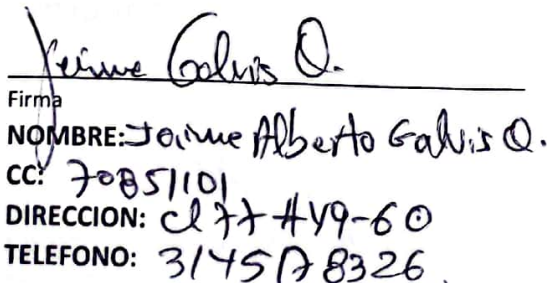 Jaime Galvis Q.
Firma
NOMBRE: Jaime Alberto Galvis Q.
CC: 70851101
DIRECCION: Cl 77 #49-60
TELEFONO: 3145178326